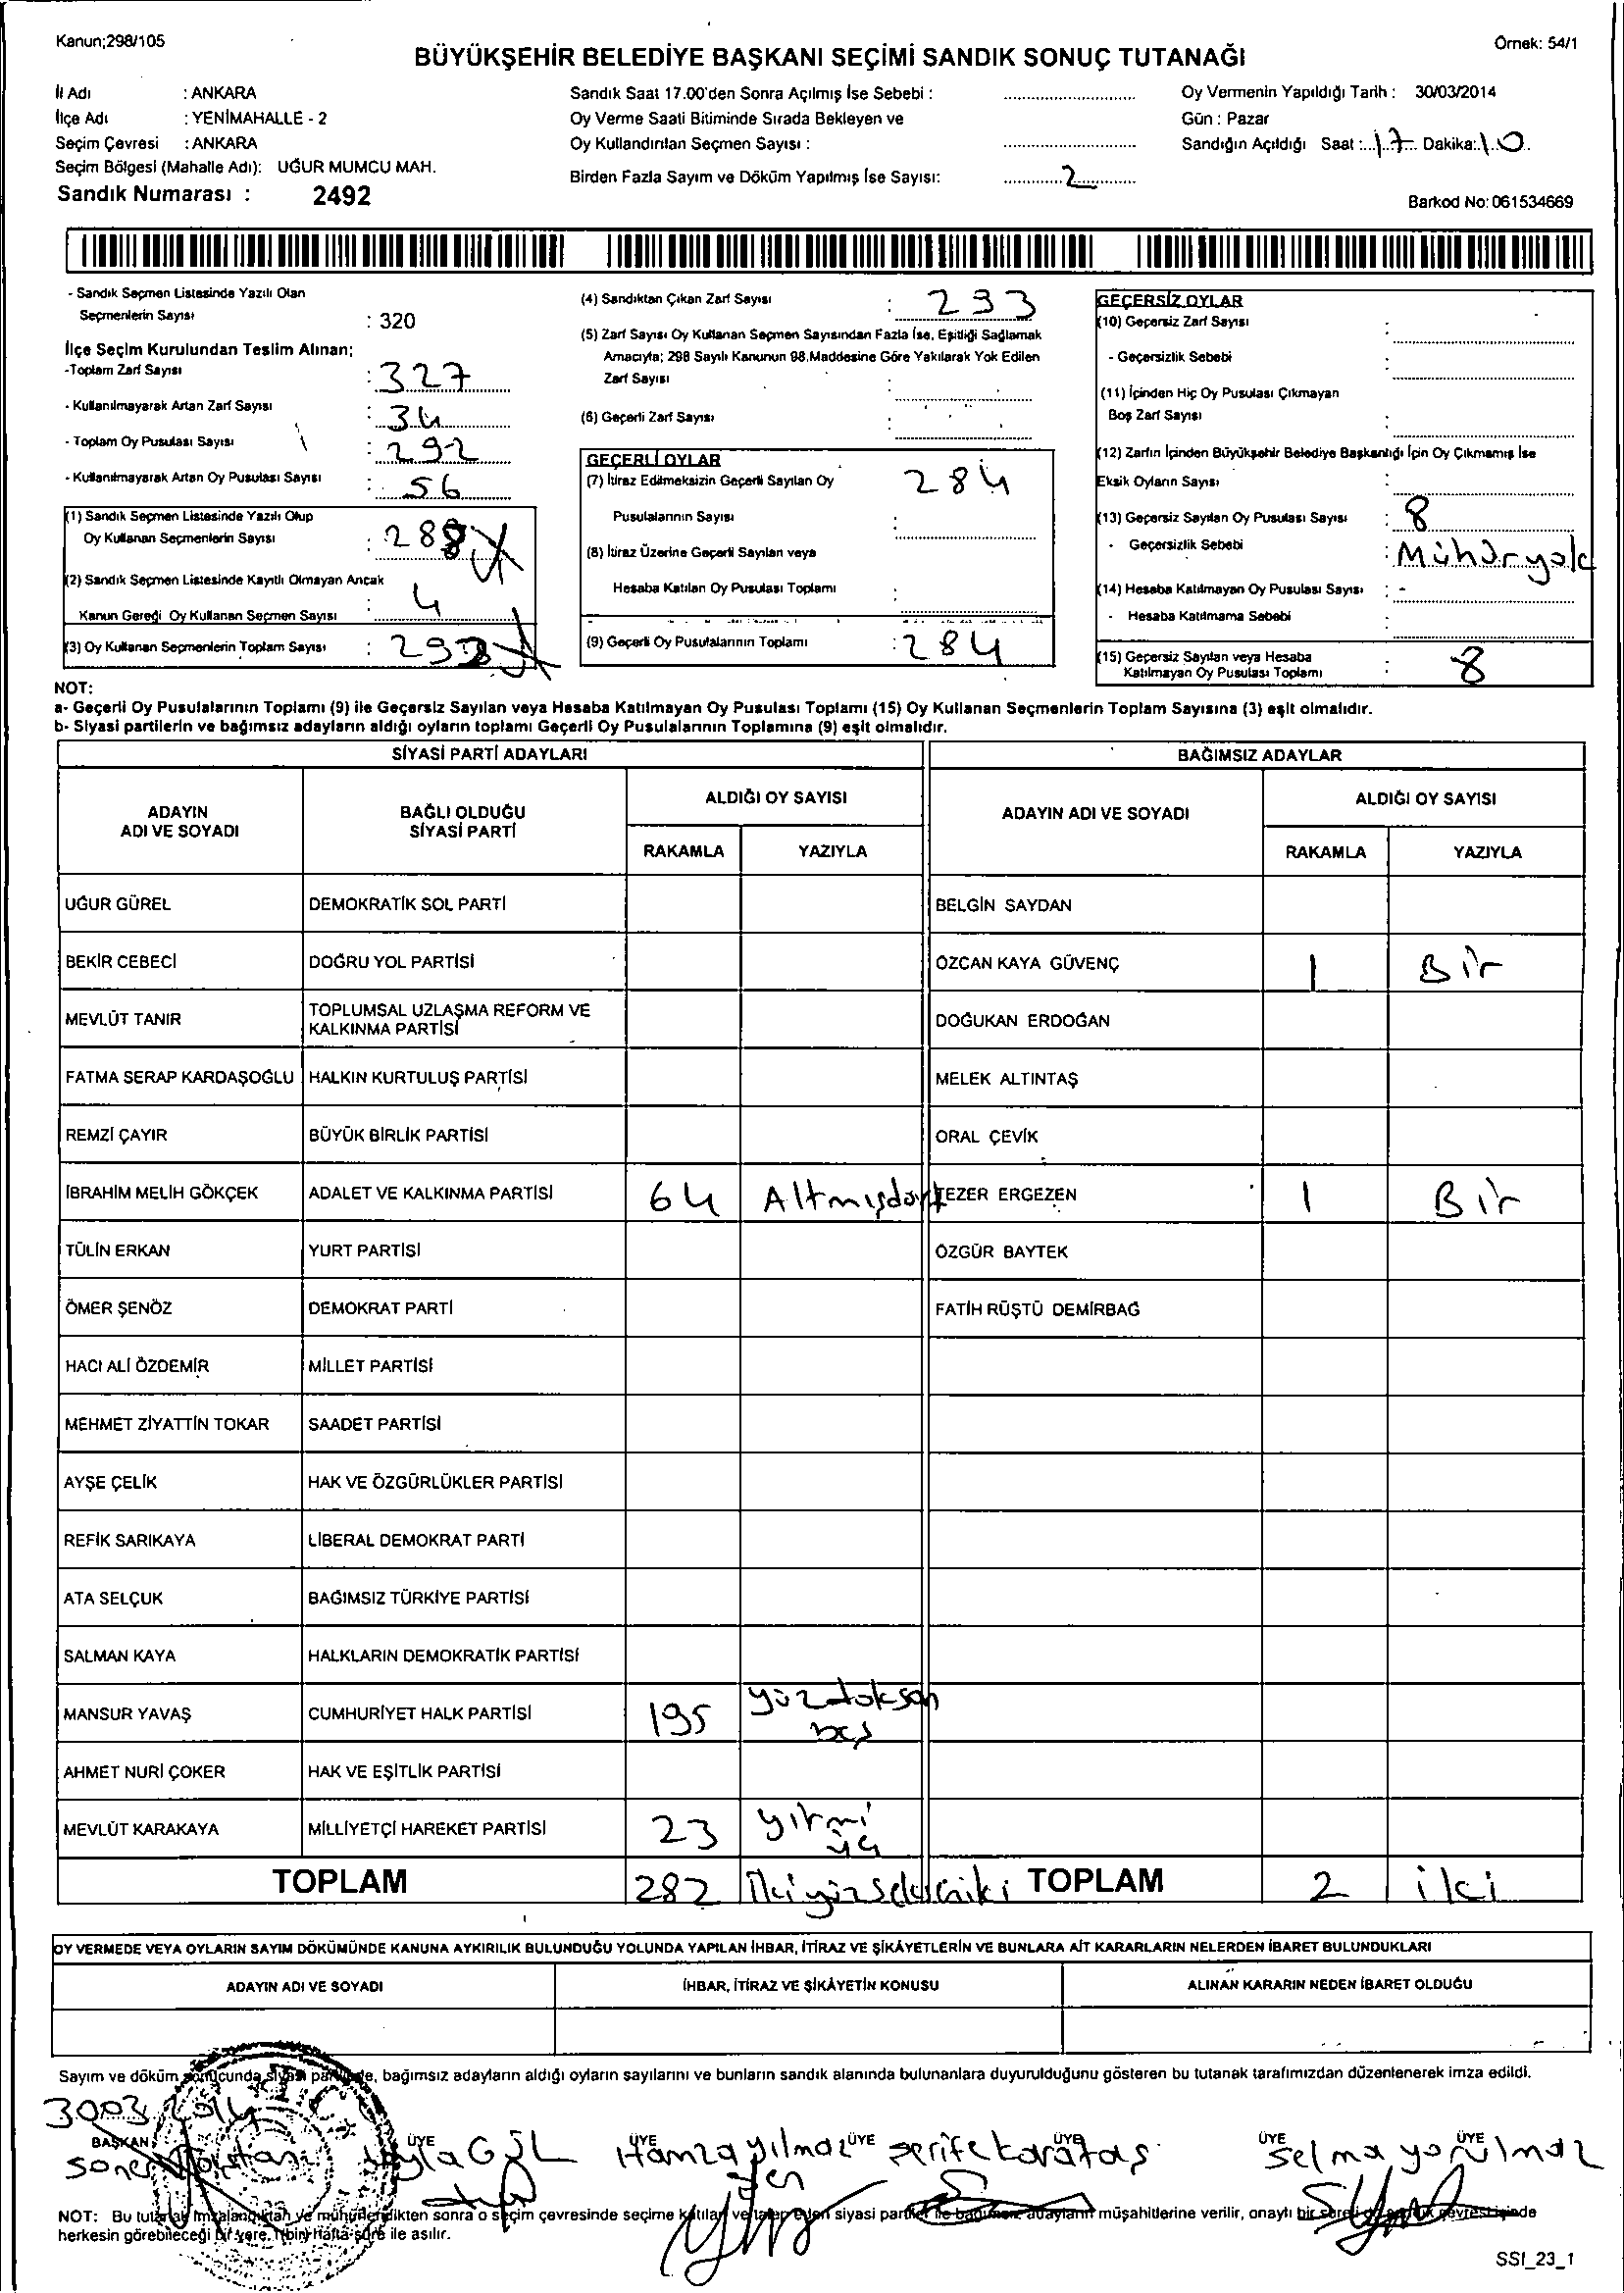 Kanun;298/105
Örnek: 54/1
BÜYÜKŞEHİR BELEDİYE BAŞKANI SEÇİMİ SANDIK SONUÇ TUTANAĞI
İl Adı : ANKARA
İlçe Adı : YENİMAHALLE - 2
Seçim Çevresi : ANKARA
Seçim Bölgesi (Mahalle Adı): UĞUR MUMCU MAH.
Sandık Numarası : 2492
Sandık Saat 17.00'den Sonra Açılmış İse Sebebi :
Oy Verme Saati Bitiminde Sırada Bekleyen ve
Oy Kullandırılan Seçmen Sayısı :
Birden Fazla Sayım ve Döküm Yapılmış İse Sayısı: 2
Oy Vermenin Yapıldığı Tarih : 30/03/2014
Gün : Pazar
Sandığın Açıldığı Saat : 17 Dakika: 10
Barkod No: 061534669
- Sandık Seçmen Listesinde Yazılı Olan
Seçmenlerin Sayısı : 320
İlçe Seçim Kurulundan Teslim Alınan;
-Toplam Zarf Sayısı : 327
- Kullanılmayarak Artan Zarf Sayısı : 34
- Toplam Oy Pusulası Sayısı : 292
- Kullanılmayarak Artan Oy Pusulası Sayısı : 56
(1) Sandık Seçmen Listesinde Yazılı Olup
Oy Kullanan Seçmenlerin Sayısı : 288
(2) Sandık Seçmen Listesinde Kayıtlı Olmayan Ancak
Kanun Gereği Oy Kullanan Seçmen Sayısı : 4
(3) Oy Kullanan Seçmenlerin Toplam Sayısı :
(4) Sandıktan Çıkan Zarf Sayısı : 293
(5) Zarf Sayısı Oy Kullanan Seçmen Sayısından Fazla İse, Eşitliği Sağlamak
Amacıyla; 298 Sayılı Kanunun 98.Maddesine Göre Yakılarak Yok Edilen
Zarf Sayısı :
(6) Geçerli Zarf Sayısı :
GEÇERLİ OYLAR
(7) İtiraz Edilmeksizin Geçerli Sayılan Oy 284
Pusulalarının Sayısı :
(8) İtiraz Üzerine Geçerli Sayılan veya
Hesaba Katılan Oy Pusulası Toplamı :
(9) Geçerli Oy Pusulalarının Toplamı : 284
GEÇERSİZ OYLAR
(10) Geçersiz Zarf Sayısı :
- Geçersizlik Sebebi :
(11) İçinden Hiç Oy Pusulası Çıkmayan
Boş Zarf Sayısı :
(12) Zarfın İçinden Büyükşehir Belediye Başkanlığı İçin Oy Çıkmamış İse
Eksik Oyların Sayısı :
(13) Geçersiz Sayılan Oy Pusulası Sayısı : 8
- Geçersizlik Sebebi : Mühür yok
(14) Hesaba Katılmayan Oy Pusulası Sayısı : -
- Hesaba Katılmama Sebebi :
(15) Geçersiz Sayılan veya Hesaba
Katılmayan Oy Pusulası Toplamı : 8
NOT:
a- Geçerli Oy Pusulalarının Toplamı (9) ile Geçersiz Sayılan veya Hesaba Katılmayan Oy Pusulası Toplamı (15) Oy Kullanan Seçmenlerin Toplam Sayısına (3) eşit olmalıdır.
b- Siyasi partilerin ve bağımsız adayların aldığı oyların toplamı Geçerli Oy Pusulalarının Toplamına (9) eşit olmalıdır.
SİYASİ PARTİ ADAYLARI
BAĞIMSIZ ADAYLAR
ADAYIN ADI VE SOYADI
BAĞLI OLDUĞU SİYASİ PARTİ
ALDIĞI OY SAYISI
RAKAMLA YAZIYLA
ADAYIN ADI VE SOYADI
ALDIĞI OY SAYISI
RAKAMLA YAZIYLA
UĞUR GÜREL DEMOKRATİK SOL PARTİ BELGİN SAYDAN
BEKİR CEBECİ DOĞRU YOL PARTİSİ ÖZCAN KAYA GÜVENÇ 1 Bir
MEVLÜT TANIR TOPLUMSAL UZLAŞMA REFORM VE KALKINMA PARTİSİ DOĞUKAN ERDOĞAN
FATMA SERAP KARDAŞOĞLU HALKIN KURTULUŞ PARTİSİ MELEK ALTINTAŞ
REMZİ ÇAYIR BÜYÜK BİRLİK PARTİSİ ORAL ÇEVİK
İBRAHİM MELİH GÖKÇEK ADALET VE KALKINMA PARTİSİ 64 Altmışdört TEZER ERGEZEN 1 Bir
TÜLİN ERKAN YURT PARTİSİ ÖZGÜR BAYTEK
ÖMER ŞENÖZ DEMOKRAT PARTİ FATİH RÜŞTÜ DEMİRBAĞ
HACI ALİ ÖZDEMİR MİLLET PARTİSİ
MEHMET ZİYATTİN TOKAR SAADET PARTİSİ
AYŞE ÇELİK HAK VE ÖZGÜRLÜKLER PARTİSİ
REFİK SARIKAYA LİBERAL DEMOKRAT PARTİ
ATA SELÇUK BAĞIMSIZ TÜRKİYE PARTİSİ
SALMAN KAYA HALKLARIN DEMOKRATİK PARTİSİ
MANSUR YAVAŞ CUMHURİYET HALK PARTİSİ 195 yüzdoksan beş
AHMET NURİ ÇOKER HAK VE EŞİTLİK PARTİSİ
MEVLÜT KARAKAYA MİLLİYETÇİ HAREKET PARTİSİ 23 yirmi üç
TOPLAM 282 İkiyüzsekseniki TOPLAM 2 iki
OY VERMEDE VEYA OYLARIN SAYIM DÖKÜMÜNDE KANUNA AYKIRILIK BULUNDUĞU YOLUNDA YAPILAN İHBAR, İTİRAZ VE ŞİKÂYETLERİN VE BUNLARA AİT KARARLARIN NELERDEN İBARET BULUNDUKLARI
ADAYIN ADI VE SOYADI İHBAR, İTİRAZ VE ŞİKÂYETİN KONUSU ALINAN KARARIN NEDEN İBARET OLDUĞU
Sayım ve döküm sonucunda siyasi partilerle, bağımsız adayların aldığı oyların sayılarını ve bunların sandık alanında bulunanlara duyurulduğunu gösteren bu tutanak tarafımızdan düzenlenerek imza edildi.
3003 2014
BAŞKAN ÜYE ÜYE ÜYE ÜYE ÜYE ÜYE
Soner Gül Hamza yılmaz şerife karataş Selma yorulmaz
NOT: Bu tutanak imzalandıktan ve mühürlendikten sonra o seçim çevresinde seçime katılan ve talep eden siyasi partiler ile bağımsız adayların müşahitlerine verilir, onaylı bir sureti de sandık çevresinde
herkesin görebileceği bir yere, 1(bir) hafta süre ile asılır.
SSI_23_1